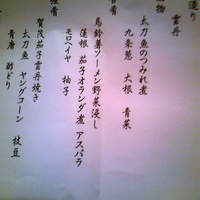 造り
雲丹
物
太刀魚のつみれ煮
九条葱 大根 青菜
肴
馬鈴薯ソーメン野菜浸し
蓮根 茄子オランダ煮 アスパラ
モロヘイヤ 柚子
肴
賀茂茄子雲丹焼き
太刀魚 ヤングコーン 枝豆
青唐 酢どり